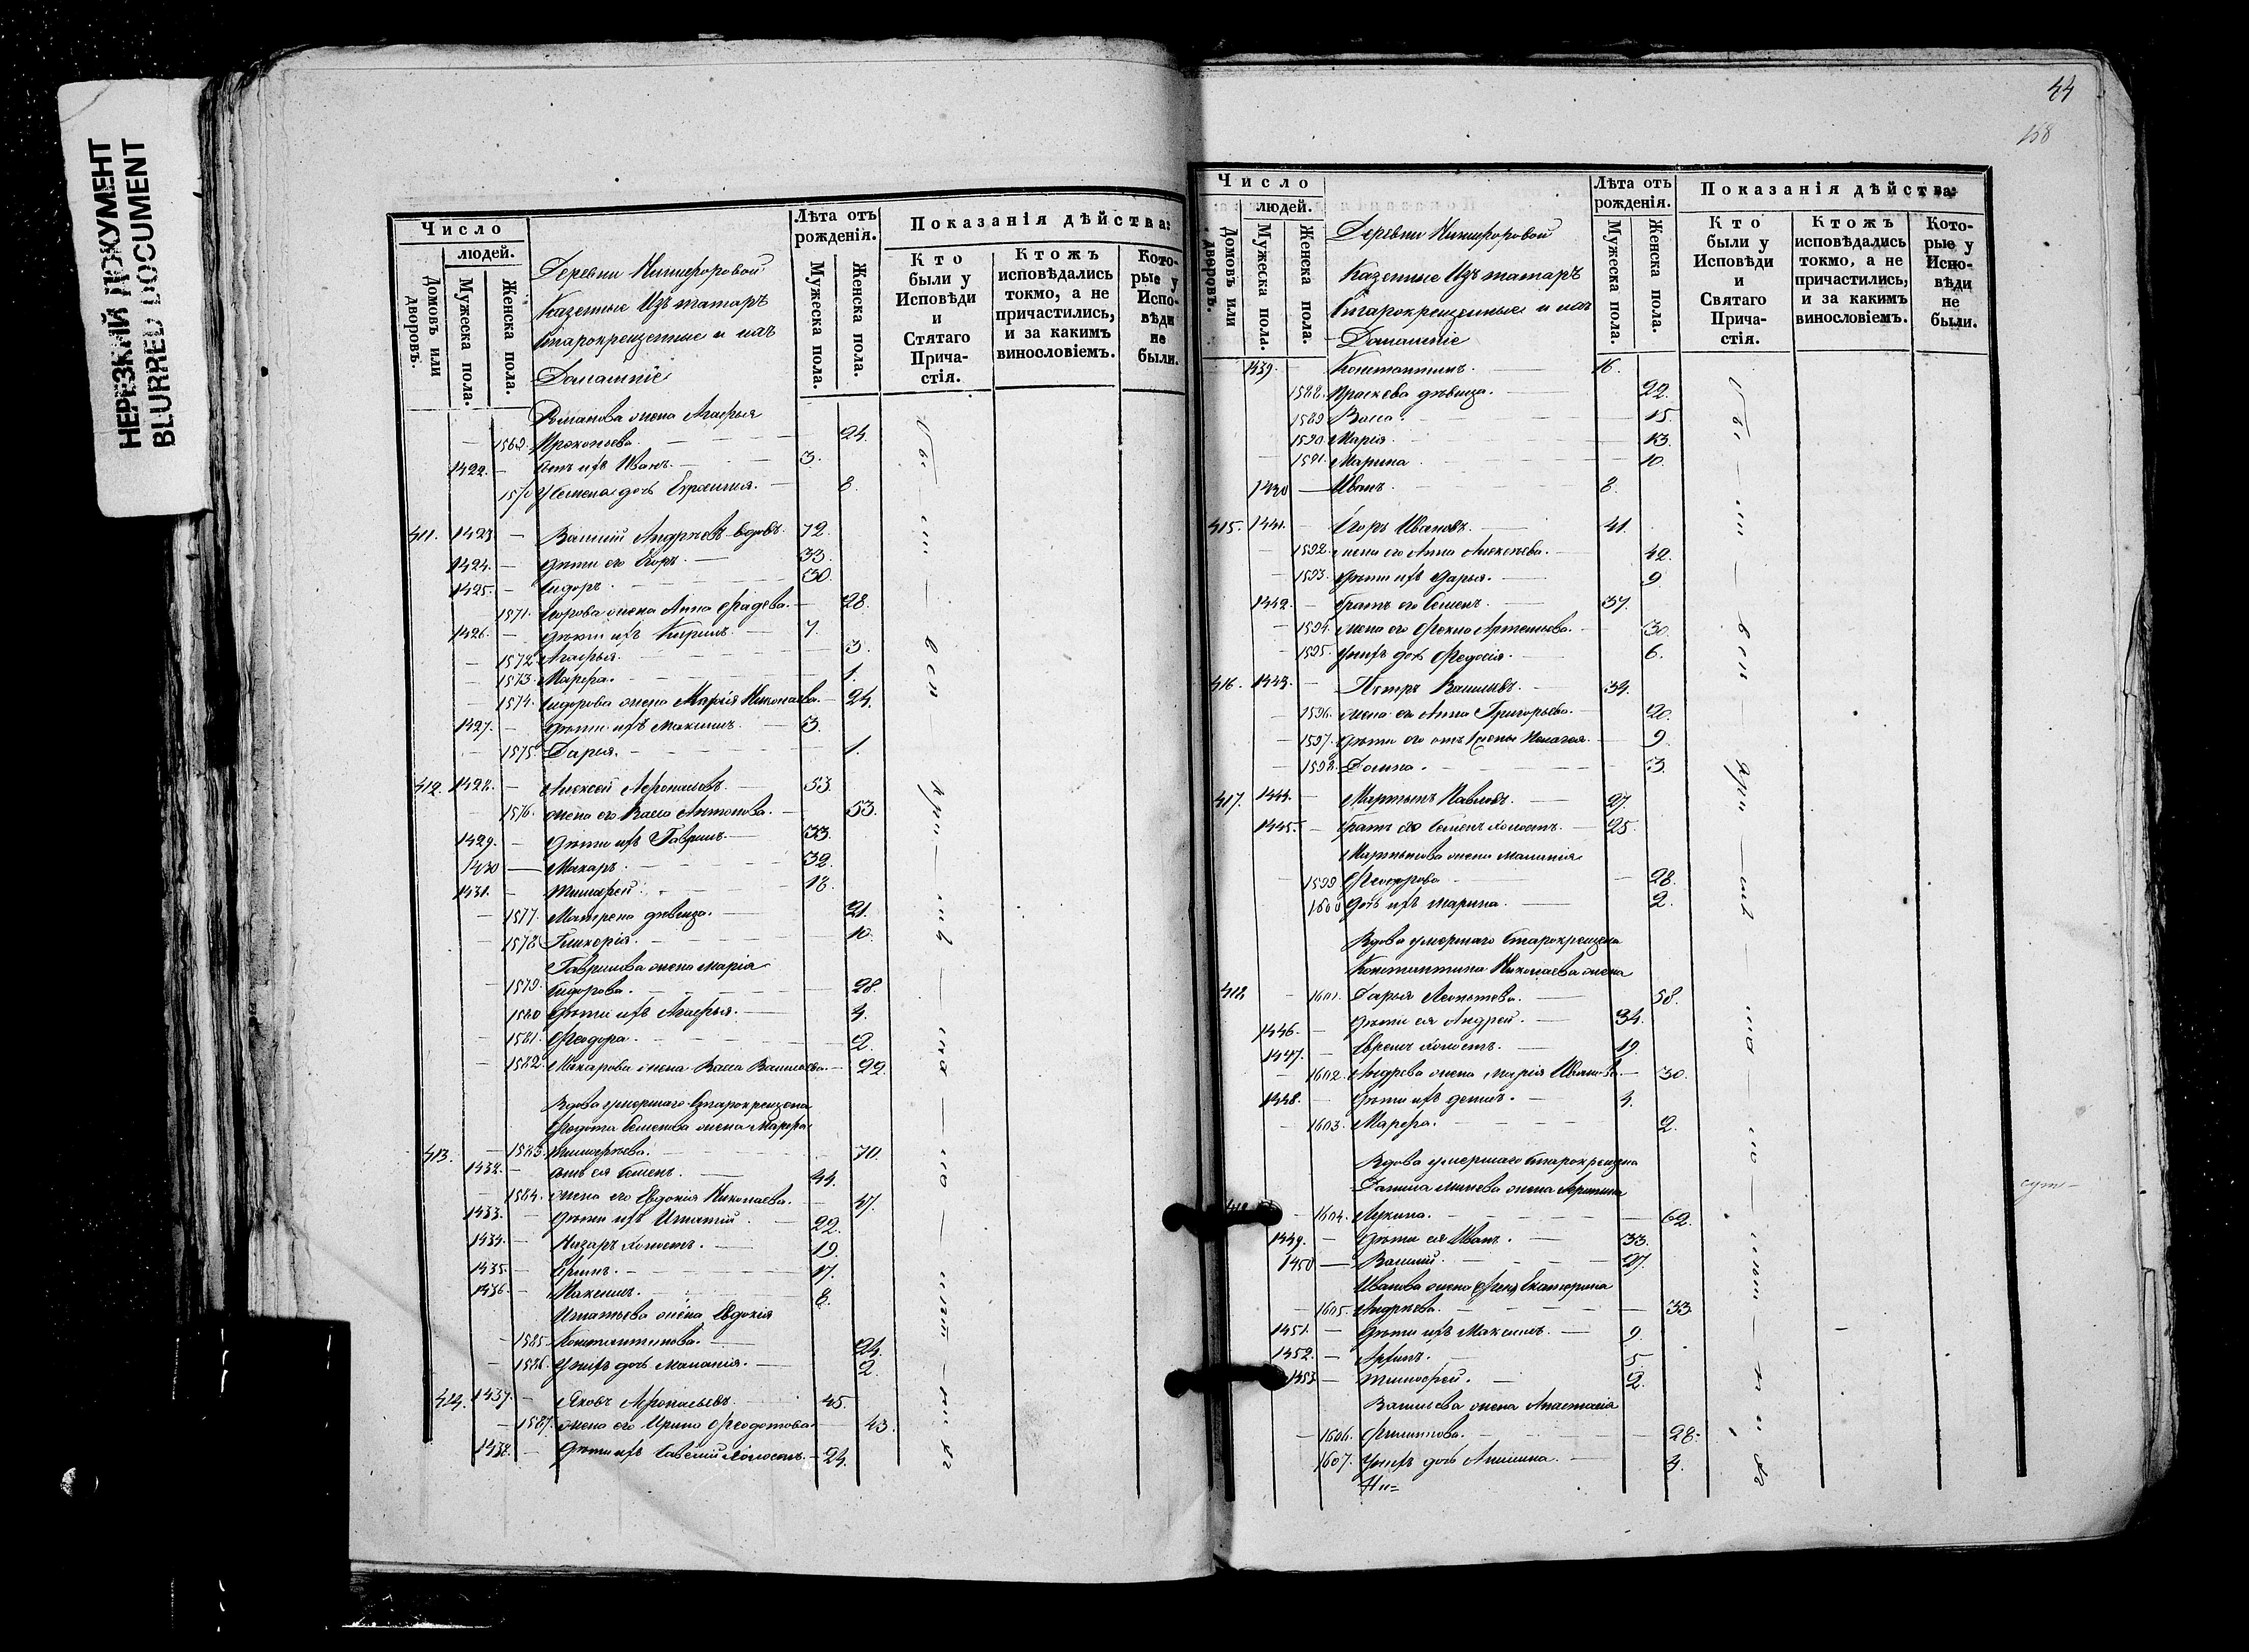 НЕРЕЗКИЙ ДОКУМЕНТ
BLURRED DOCUMENT
Число
людей.
Домовъ или дворовъ.
Мужеска пола.
Женска пола.
Деревни Никифоровой
Казенные Изъ татаръ
Старокрещенные и ихъ
Домашніе
Лѣта отъ рожденія.
Мужеска пола.
Женска пола.
Показанія дѣйства:
Кто были у Исповѣди и Стятаго Прича-стія.
Ктожъ исповѣдались токмо, а не причастились, и за какимъ винословіемъ.
Кото-рые у Испо-вѣди не были.
Романова жена Агафья
1569. Прокопьева. 24.
1422. Сынъ ихъ Иванъ. 3.
1570 дочь 8.
411. 1423 Василій Андреевъ вдовъ. 72.
1424. дѣти его Егоръ. 33.
1425. Сидоръ. 30.
1571. Егорова жена Анна Фадѣева. 28.
1426. дѣти ихъ Кирилъ. 7.
1572 Агафья. 3.
1573. Марфа. 1.
1574. Сидорова жена Марія Николаева. 24.
1427. дѣти ихъ Максимъ. 3.
1575. Дарья. 1.
412. 1428. Алексей Афонасьевъ. 53.
1576. жена его Васса Антонова. 53.
1429. дѣти ихъ Гаврилъ. 33.
1430 Макаръ. 32.
1431. Тимофей. 18.
1577. Матрена дѣвица. 21.
1578 Гликерія. 10.
Гаврилова жена Марія
1579. Сидорова. 28.
1580 дѣти ихъ Агафья. 4.
1581. Феодора. 2.
1582. Макарова жена Васса Васильева. 22.
Вдова умершаго Старокрещена
Федота Семенова жена Марфа
413. 1583. Тимофеева. 70.
1432. сынъ ея Семенъ. 44.
1584. жена его Евдокія Николаева. 47.
1433. дѣти ихъ Игнатій. 22.
1434. Назаръ холостъ. 19.
1435. 17.
1436. Максимъ. 8.
Игнатьева жена Евдокія
1585. Константинова. 24.
1586. Унихъ дочь Маланія. 2.
414. 1437. Яковъ Афонасьевъ. 45.
1587. жена его Ирина Феодотова. 43.
1438. дѣти ихъ Савелій холостъ. 24.
44
158
Число
людей.
Домовъ или дворовъ.
Мужеска пола.
Женска пола.
Деревни Никифоровой
Казенные Изъ татаръ
Старокрещенные и ихъ
Домашніе
Лѣта отъ рожденія.
Мужеска пола.
Женска пола.
Показанія дѣйства:
Кто были у Исповѣди и Святаго Прича-стія.
Ктожъ исповѣдались токмо, а не причастились, и за какимъ винословіемъ.
Кото-рые у Испо-вѣди не были.
1439. Константинъ. 16.
1588. Праскева дѣвица. 22.
1589 Васса. 15.
1590 Марія. 13.
1591. Марина 10.
1440 Иванъ. 8.
415. 1441. Егоръ Ивановъ. 41.
1592. жена его Анна Алексеева. 42.
1593. дѣти ихъ Дарья. 9
1442. братъ его Семенъ. 37.
1594. жена его Фекла Артемьева. 30.
1595. Унихъ дочь Федосія. 6.
416. 1443. Петръ Васильевъ. 39.
1596. жена его Анна Григорьева. 20.
1597. дѣти его отъ жены Пелагея. 9
1598. Домна. 3.
417. 1444. Мартынъ Павловъ. 27.
1445. братъ его Семенъ холостъ. 25.
Мартынова жена Маланія
1599 28.
1600 дочь ихъ Марина. 2.
Вдова умершаго Старокрещена
Константина Николаева жена
418 1601. Дарья Леонтьева. 58.
1446. дѣти ея Андрей. 34.
1447. Ефремъ холостъ. 19.
1602. Андреева жена Марія Иванова. 30.
1448. дѣти ихъ 4.
1603. Марфа. 2.
Вдова умершаго Старокрещена
Данила жена
1604. Лукина. 62.
1449. дѣти ея Иванъ. 33.
1450 Василій. 27.
Иванова жена Екатерина
1605. Андреева. 33.
1451. дѣти ихъ Максимъ. 9.
1452. 5.
1453 Тимофей. 2.
Васильева жена Анастасія
1606. Филиппова. 28.
1607. Унихъ дочь 4.